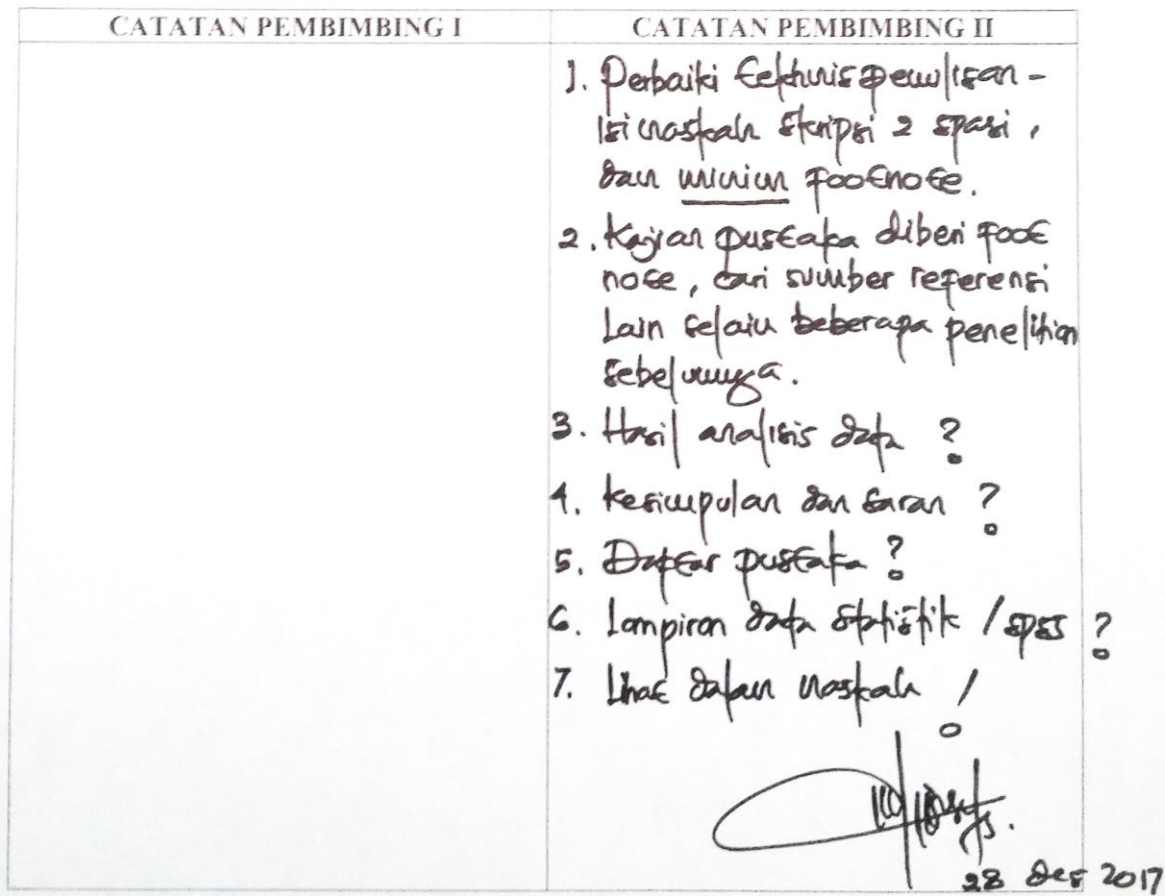 CATATAN PEMBIMBING I
CATATAN PEMBIMBING II
1. Perbaiki tekhnis penulisan -
isi naskah skripsi 2 spasi,
dan minim footnote.
2. Kajian pustaka diberi foot
note, cari sumber referensi
Lain selain beberapa penelitian
sebelumnya.
3. Hasil analisis data ?
4. Kesimpulan dan saran ?
5. Daftar pustaka ?
6. Lampiran data statistik / spss ?
7. Lihat dalam naskah !
28 Des 2017